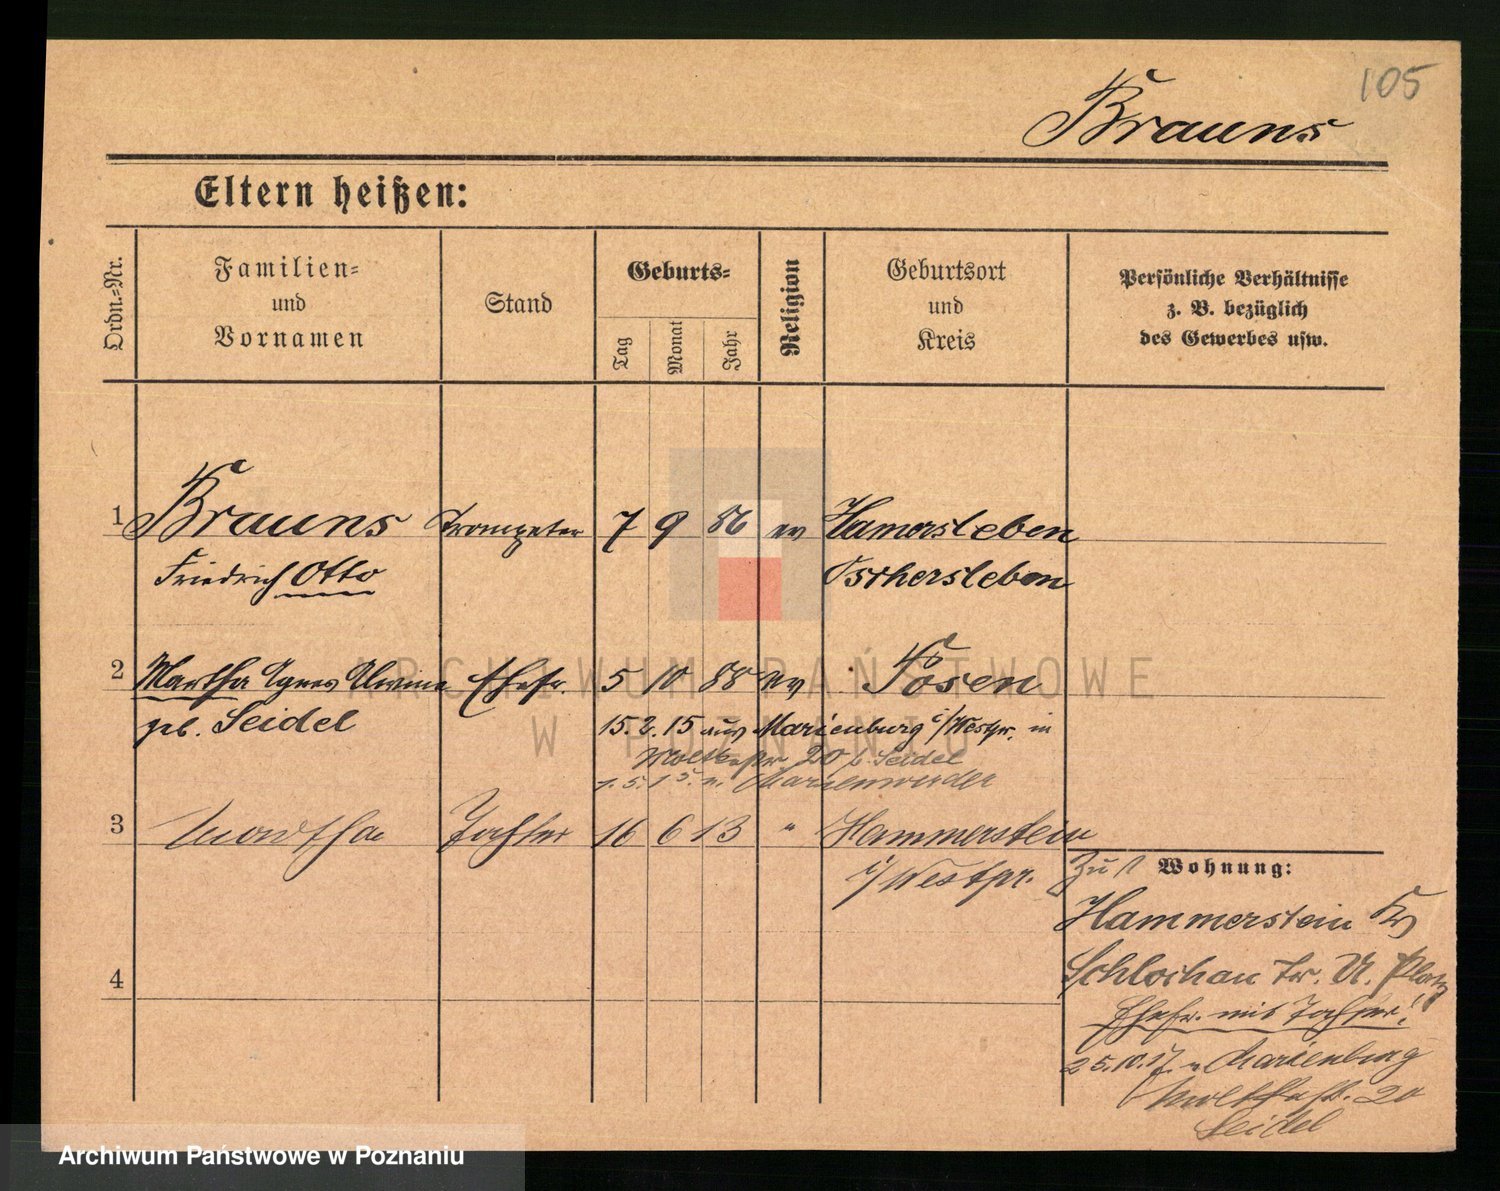 105
Brauns
Eltern heißen:
Ordn.=Nr.
Familien=
und
Vornamen
Stand
Geburts=
Tag
Monat
Jahr
Religion
Geburtsort
und
Kreis
Persönliche Verhältnisse
z. B. bezüglich
des Gewerbes usw.
1 Brauns Trompeter 7 9 86 ev Hamersleben
Friedrich Otto Oschersleben
2 Martha Agnes Ehefr. 5 10 88 ev Posen
geb. Seidel
15.2.15 aus Marienburg i/Westpr. in
Moltkestr 20 b. Seidel
1.5.15 n. Marienwerder
3 Martha Tochter 16 6 13 " Hammerstein
i/Westpr.
Zu 1 Wohnung:
Hammerstein Kr
Schlochau Tr. Ü. Platz
4
Ehefr. mit Tochter!
25.10.17 n Marienburg
Moltkestr. 20
Seidel
ARCHIWUM PAŃSTWOWE
W POZNANIU
Archiwum Państwowe w Poznaniu